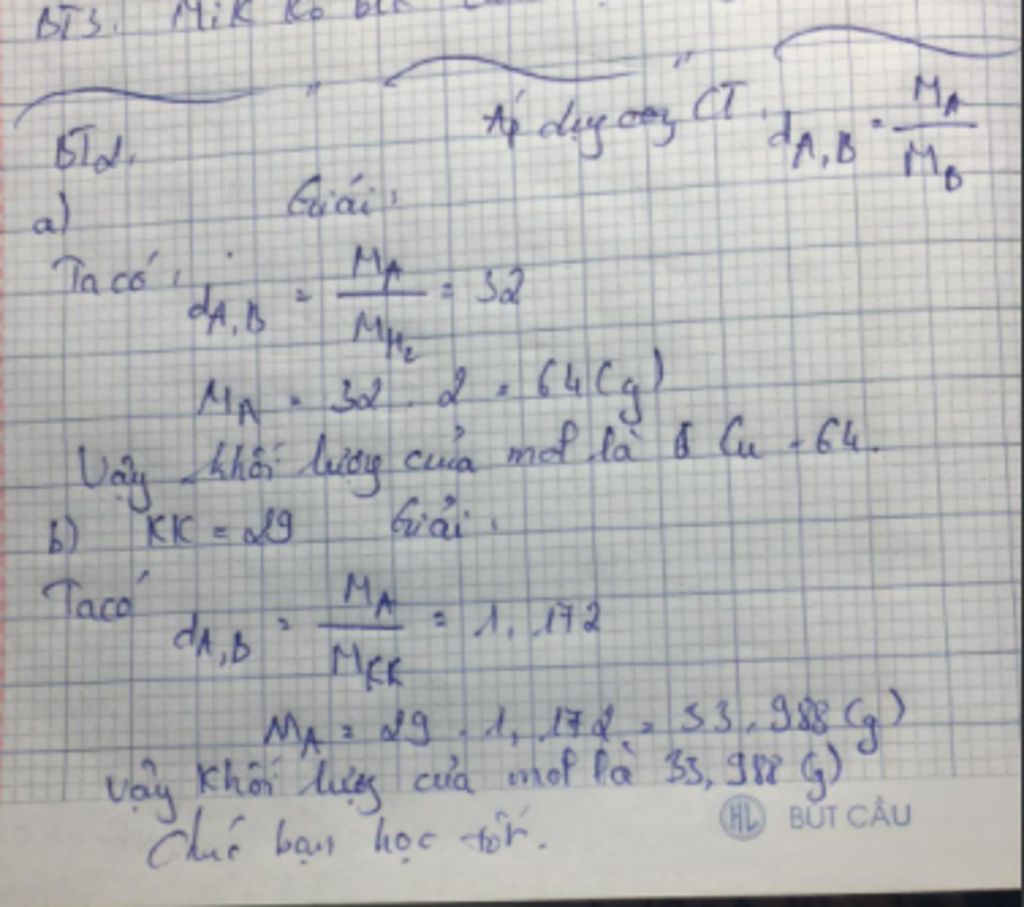 BT3. Mik ko biết
Áp dụng công CT. dA,B = MA / MB
BT2.
a) Giải:
Ta có: dA,B = MA / MH2 = 32
MA = 32 . 2 = 64 (g)
Vậy khối lượng của mol là Cu = 64.
b) KK = 29 Giải:
Ta có dA,B = MA / MKK = 1,172
MA = 29 . 1,172 = 33.988 (g)
Vậy khối lượng của mol là 33,988 (g)
Chúc bạn học tốt.
HL BÚT CẦU